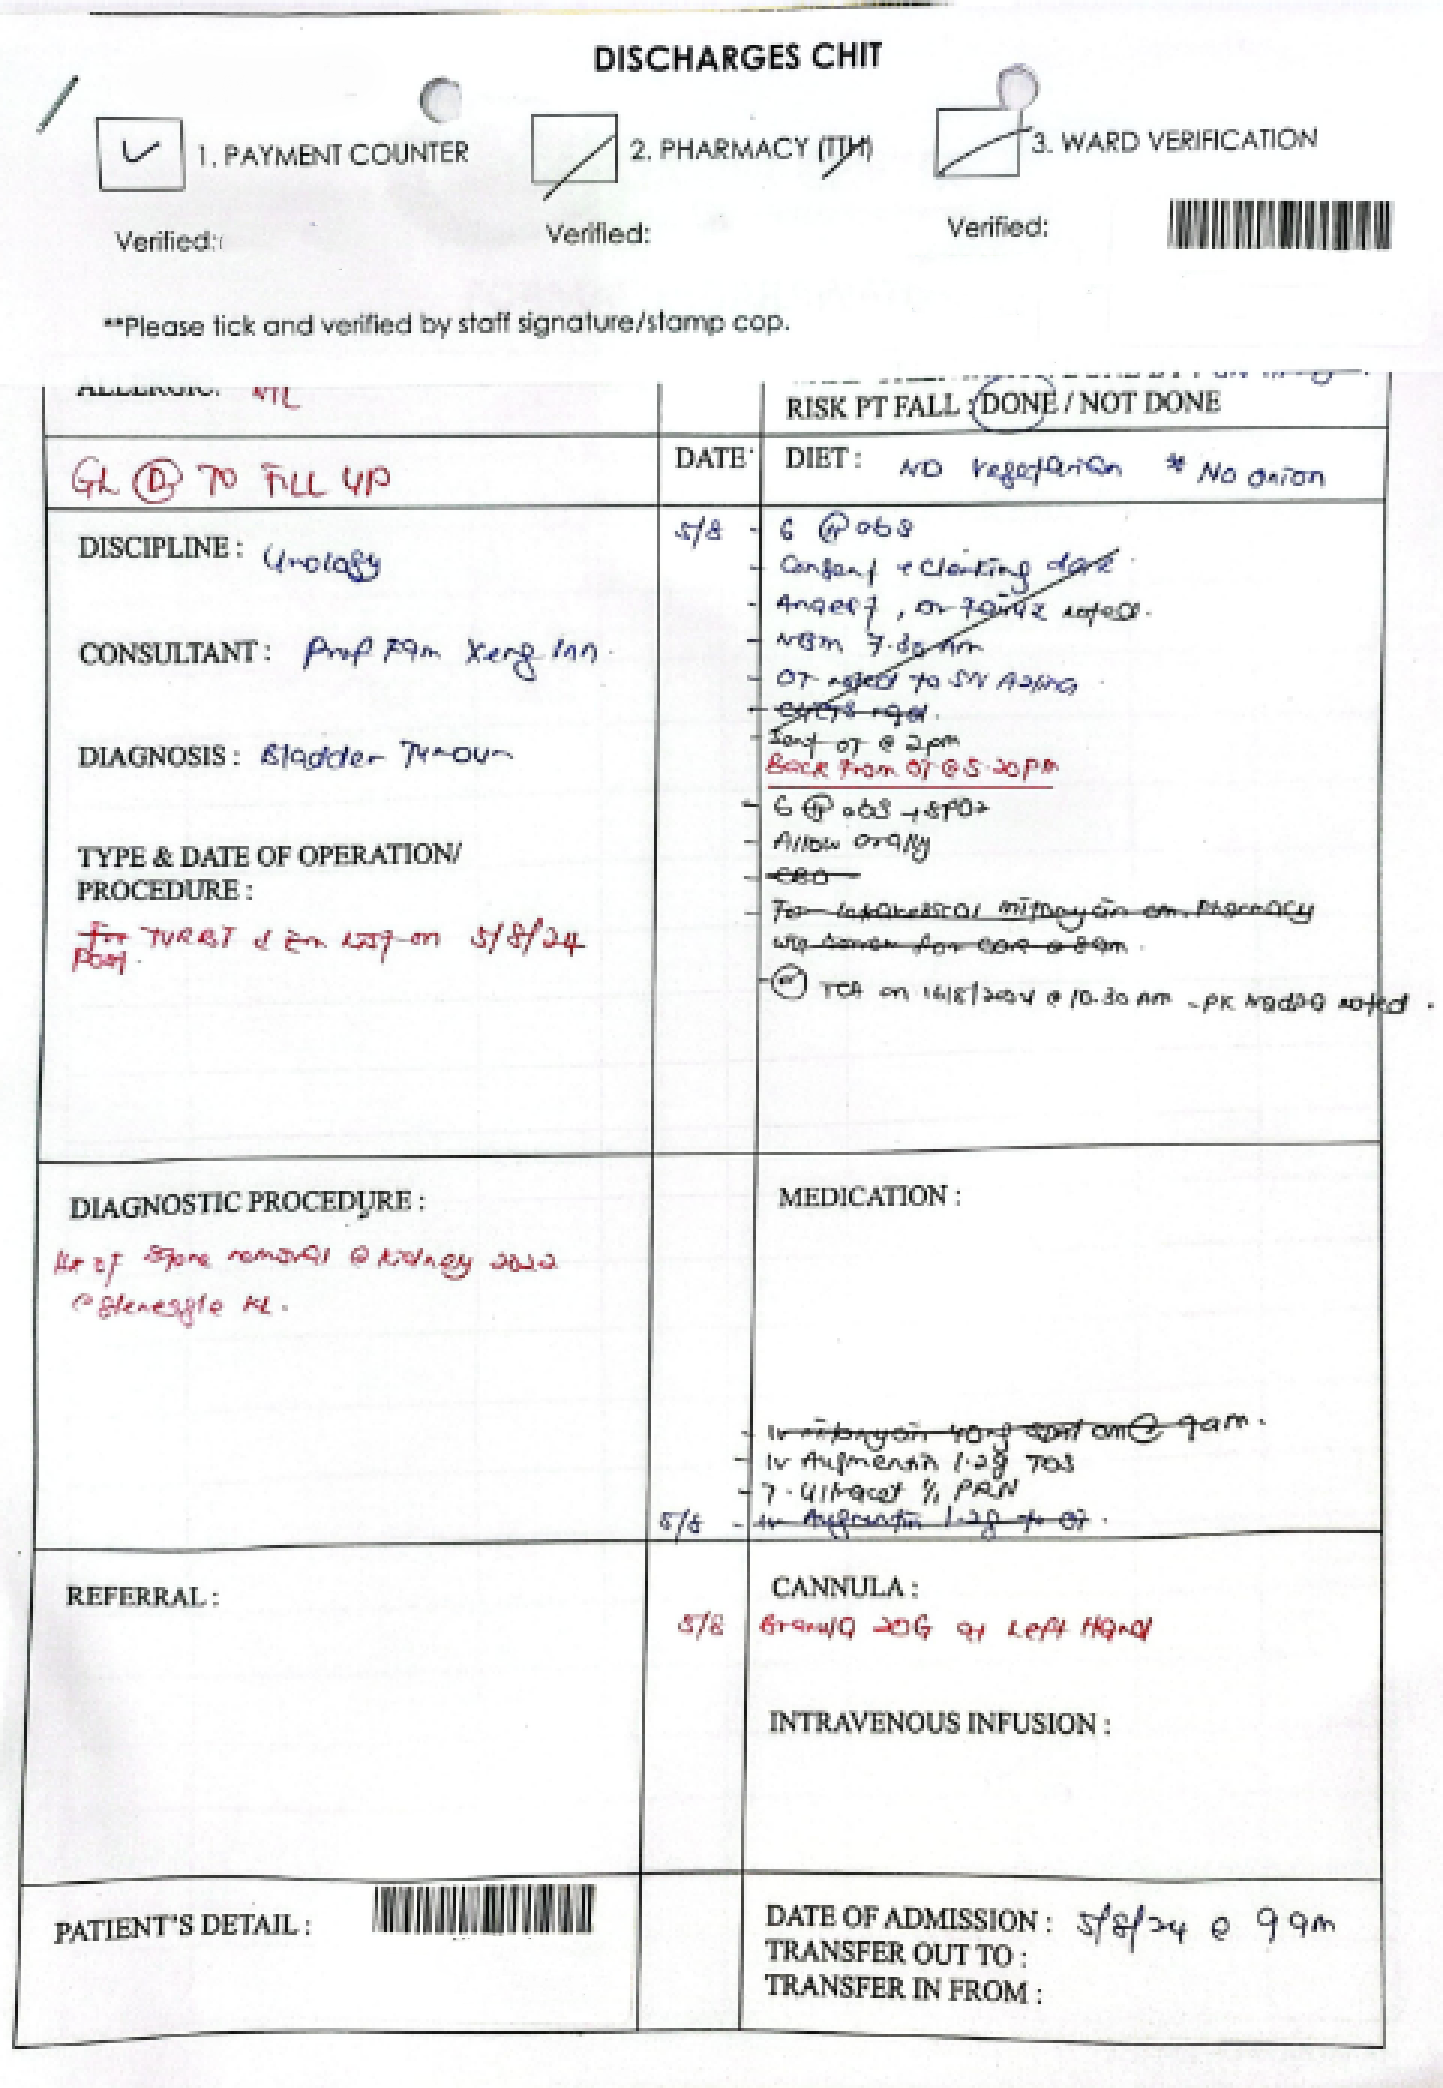 DISCHARGES CHIT
1. PAYMENT COUNTER
2. PHARMACY (TTH)
3. WARD VERIFICATION
Verified:
Verified:
Verified:
**Please tick and verified by staff signature/stamp cop.
ALLERGIC: NIL
RISK PT FALL : DONE / NOT DONE
GL FILL UP
DATE
DIET : ND vegetarian * No onion
DISCIPLINE : Urology
CONSULTANT : Prof Xeng Inn
DIAGNOSIS : Bladder Tumour
TYPE & DATE OF OPERATION/
PROCEDURE :
for TURBT on 5/8/24
Post.
5/8 - 6 obs
- Consent + Clerking done
- notess.
- NBM 7.30 am
- OT noted to SN
Sent OT @ 2pm
Back From OT @ 5.20pm
- 6 obs + SPO2
- Allow orally
- CBD
- For mitomycin cm. Pharmacy
for @ 8am.
- TCA on 16/8/2024 @ 10.30 AM - PK noted.
DIAGNOSTIC PROCEDURE :
Hx of stone removal @ kidney 2022
@ Gleneagle KL.
MEDICATION :
- IV mitomycin 40mg 9am.
- IV Augmentin 1.2g TDS
- T. Ultracet PRN
5/8 - IV Augmentin 1.2g to OT.
REFERRAL :
CANNULA :
5/8 Branula 20G at Left Hand
INTRAVENOUS INFUSION :
PATIENT'S DETAIL :
DATE OF ADMISSION : 5/8/24 @ 9am
TRANSFER OUT TO :
TRANSFER IN FROM :